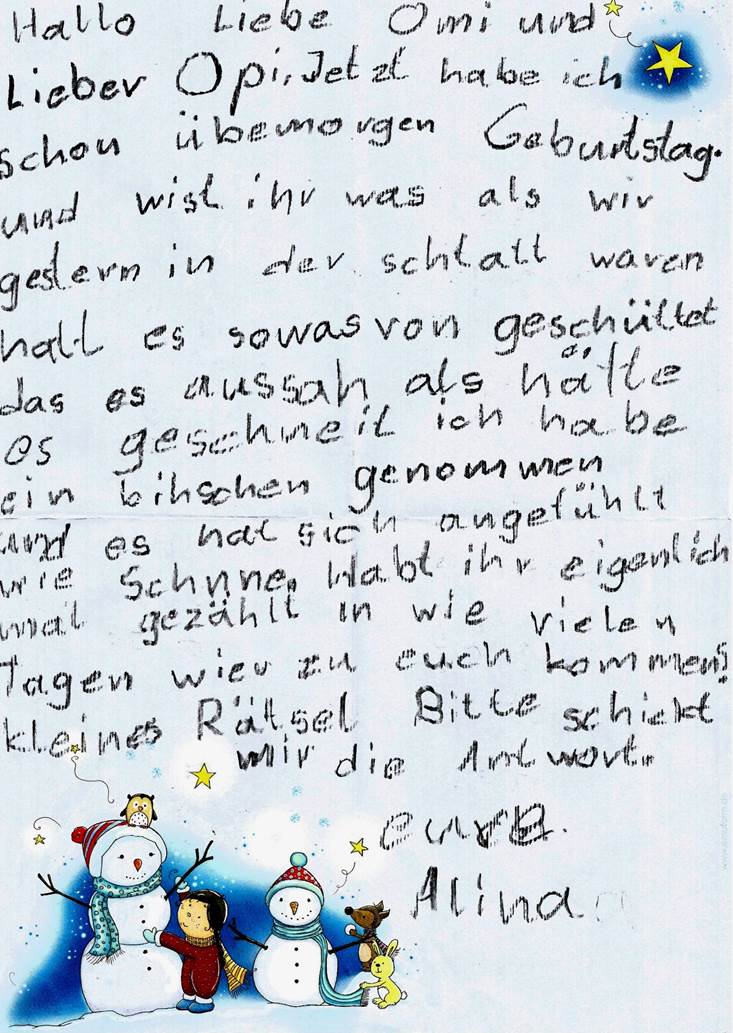 Hallo Liebe Omi und
Lieber Opi, Jetzt habe ich
schon übemorgen Geburtstag.
und wist ihr was als wir
gestern in der schtatt waren
hatt es sowas von geschüttet
das es aussah als hätte
es geschneit ich habe
ein bihschen genommen
und es hat sich angefühlt
wie Schnne. Habt ihr eigenlich
mal gezählt in wie vielen
Tagen wier zu euch kommen?
kleines Rätsel Bitte schickt
mir die Antwort.
eure.
Alina